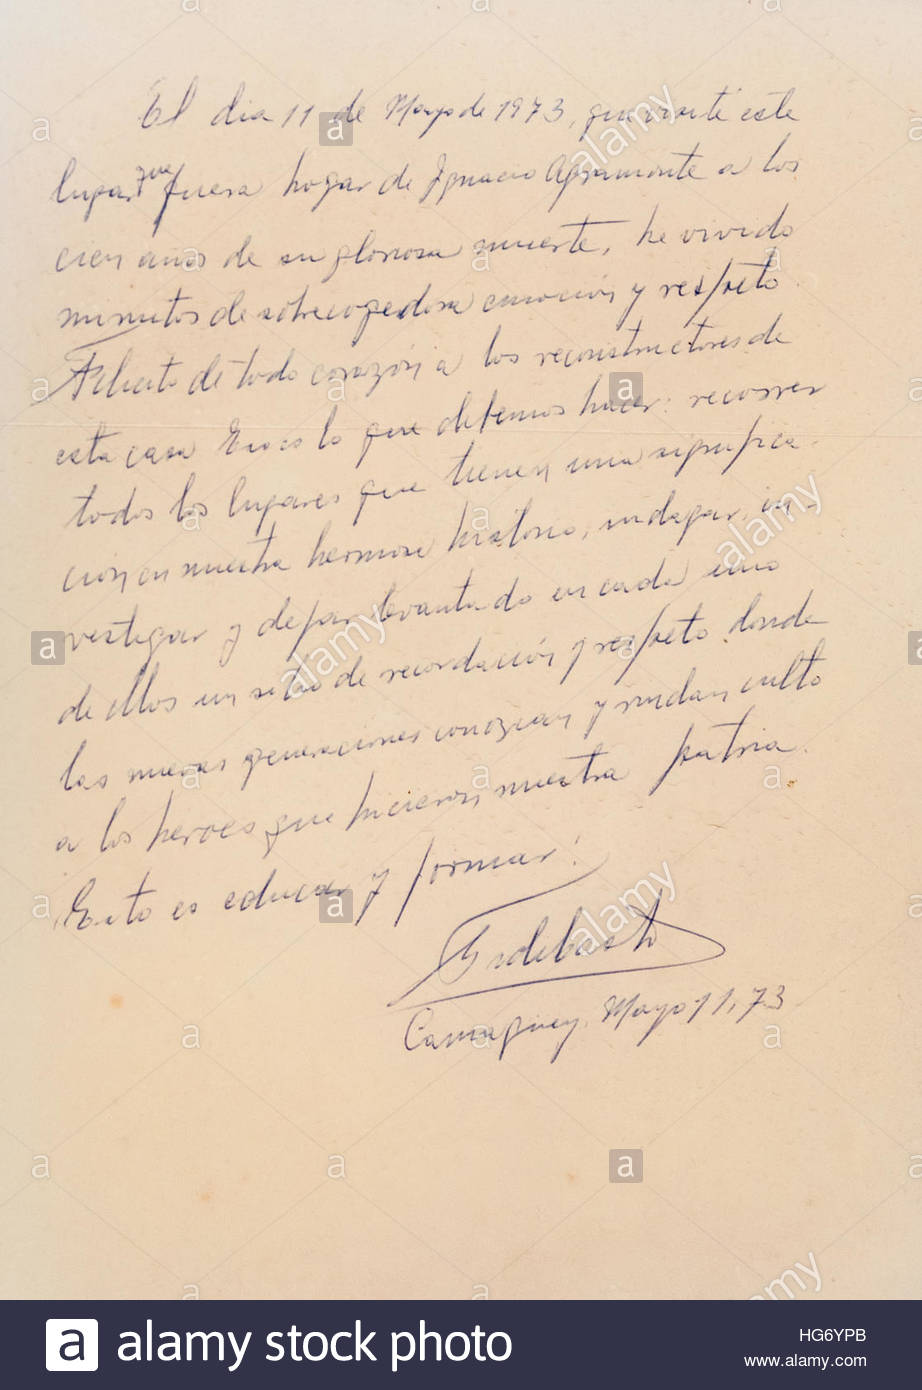 El dia 11 de Mayo de 1973, que visité este
lugar que fuera hogar de Ignacio Agramonte a los
cien años de su gloriosa muerte, he vivido
minutos de sobrecogedora emoción y respeto.
Felicito de todo corazón a los reconstructores de
esta casa Eso es lo que debemos hacer: recorrer
todos los lugares que tienen una significa-
ción en nuestra hermosa historia, indagar, in-
vestigar y dejar levantado en cada uno
de ellos un sitio de recordación y respeto donde
las nuevas generaciones conozcan y rindan culto
a los heroes que hicieron nuestra patria.
Esto es educar y formar!
Camaguey, Mayo 11, 73
a alamy stock photo
HG6YPB
www.alamy.com